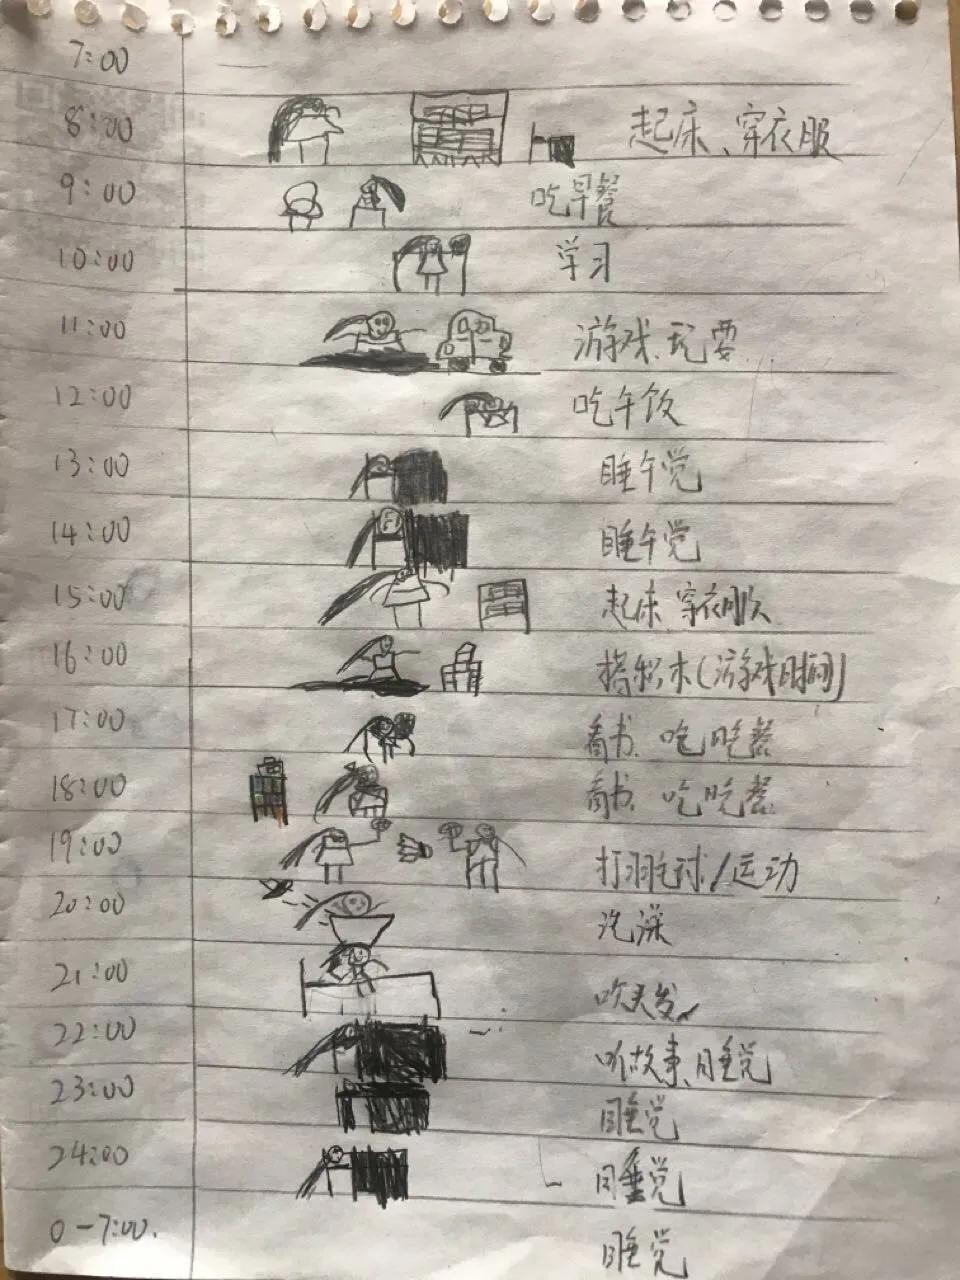 7:00
8:00 起床、穿衣服
9:00 吃早餐
10:00 学习
11:00 游戏、玩耍
12:00 吃午饭
13:00 睡午觉
14:00 睡午觉
15:00 起床 穿衣服
16:00 搭积木(游戏时间)
17:00 看书、吃晚餐
18:00 看书、吃晚餐
19:00 打羽毛球/运动
20:00 泡澡
21:00 吹头发
22:00 听故事、睡觉
23:00 睡觉
24:00 睡觉
0-7:00. 睡觉